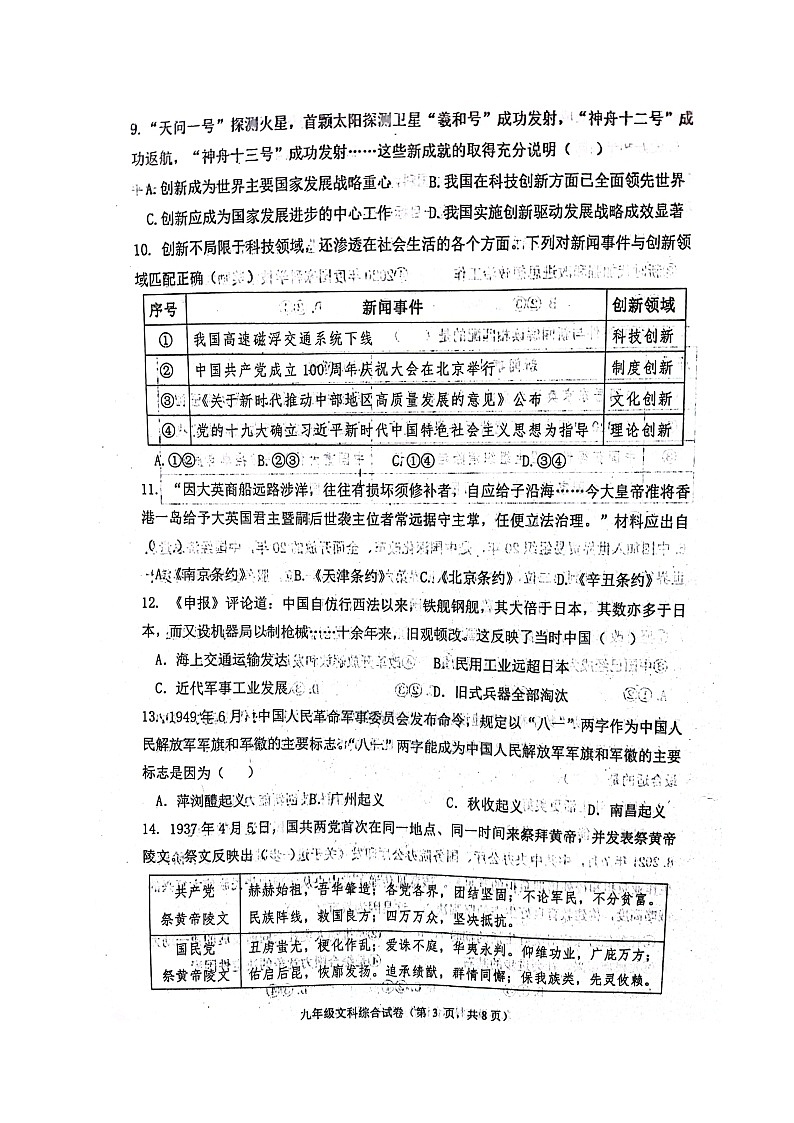 9. “天问一号”探测火星，首颗太阳探测卫星“羲和号”成功发射，“神舟十二号”成
功返航，“神舟十三号”成功发射……这些新成就的取得充分说明（ ）
A.创新成为世界主要国家发展战略重心 B.我国在科技创新方面已全面领先世界
C.创新应成为国家发展进步的中心工作 D.我国实施创新驱动发展战略成效显著
10. 创新不局限于科技领域，还渗透在社会生活的各个方面。下列对新闻事件与创新领
域匹配正确（ ）
序号 新闻事件 创新领域
① 我国高速磁浮交通系统下线 科技创新
② 中国共产党成立 100 周年庆祝大会在北京举行 制度创新
③ 《关于新时代推动中部地区高质量发展的意见》公布 文化创新
④ 党的十九大确立习近平新时代中国特色社会主义思想为指导 理论创新
A.①② B.②③ C.①④ D.③④
11. “因大英商船远路涉洋，往往有损坏须修补者，自应给予沿海……今大皇帝准将香
港一岛给予大英国君主暨嗣后世袭主位者常远据守主掌，任便立法治理。”材料应出自
A.《南京条约》 B.《天津条约》 C.《北京条约》 D.《辛丑条约》
12. 《申报》评论道：中国自仿行西法以来，铁舰钢舰，其大倍于日本，其数亦多于日
本，而又设机器局以制枪械……十余年来，旧观顿改。这反映了当时中国（ ）
A. 海上交通运输发达 B. 民用工业远超日本
C. 近代军事工业发展 D. 旧式兵器全部淘汰
13. 1949 年 6 月，中国人民革命军事委员会发布命令，规定以“八一”两字作为中国人
民解放军军旗和军徽的主要标志。“八一”两字能成为中国人民解放军军旗和军徽的主要
标志是因为（ ）
A. 萍浏醴起义 B. 广州起义 C. 秋收起义 D. 南昌起义
14. 1937 年 4 月 5 日，国共两党首次在同一地点、同一时间来祭拜黄帝，并发表祭黄帝
陵文。祭文反映出（ ）
共产党
祭黄帝陵文
赫赫始祖，吾华肇造；各党各界，团结坚固；不论军民，不分贫富。
民族阵线，救国良方；四万万众，坚决抵抗。
国民党
祭黄帝陵文
丑虏蚩尤，梗化作乱；爰诛不庭，华夷永判。仰维功业，广庇万方；
佑启后昆，恢廓发扬。追承绩猷，群情罔懈；保我族类，先灵攸赖。
九年级文科综合试卷（第 3 页，共 8 页）